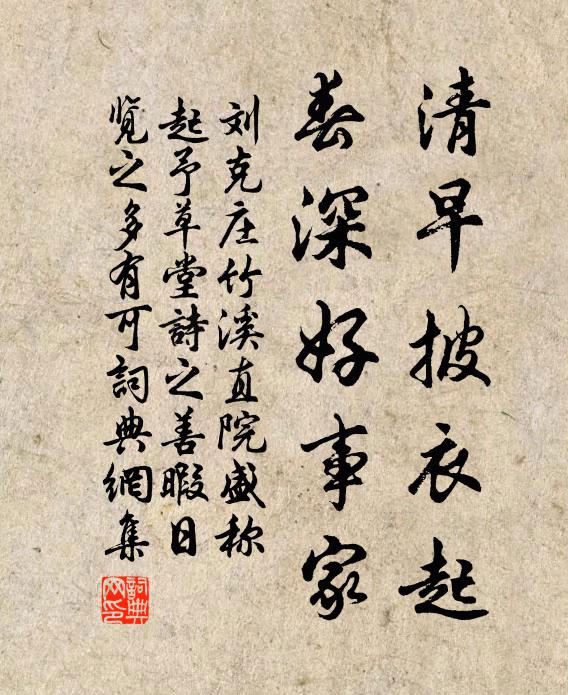 清早披衣起
春深好事家
刘克庄竹溪直院盛称
起予草堂詩之善暇日
覽之多有可詞典網集
詞典
网印